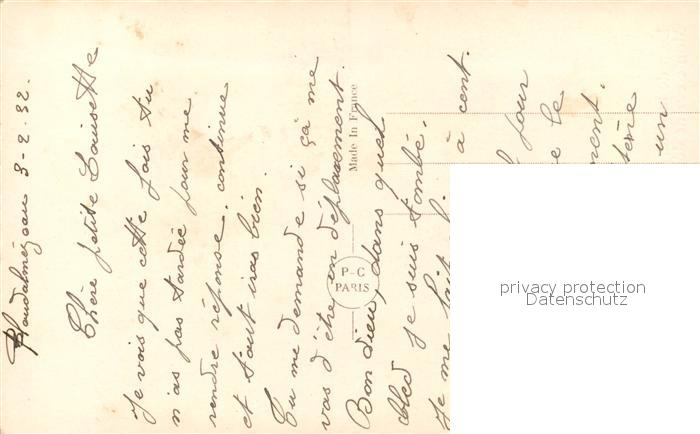 Ploudalmézeau 3-2.32.
Chère petite Causette
Je vois que cette fois tu
n'as pas tardée pour me
rendre réponse, continue
et tout iras bien.
Tu me demande si ça me
vas d'être en déplacement.
Bon dieu, dans quel
bled je suis tombé.
Je me fait à cent.
pour
le
un
Made In France
P-C
PARIS
privacy protection
Datenschutz